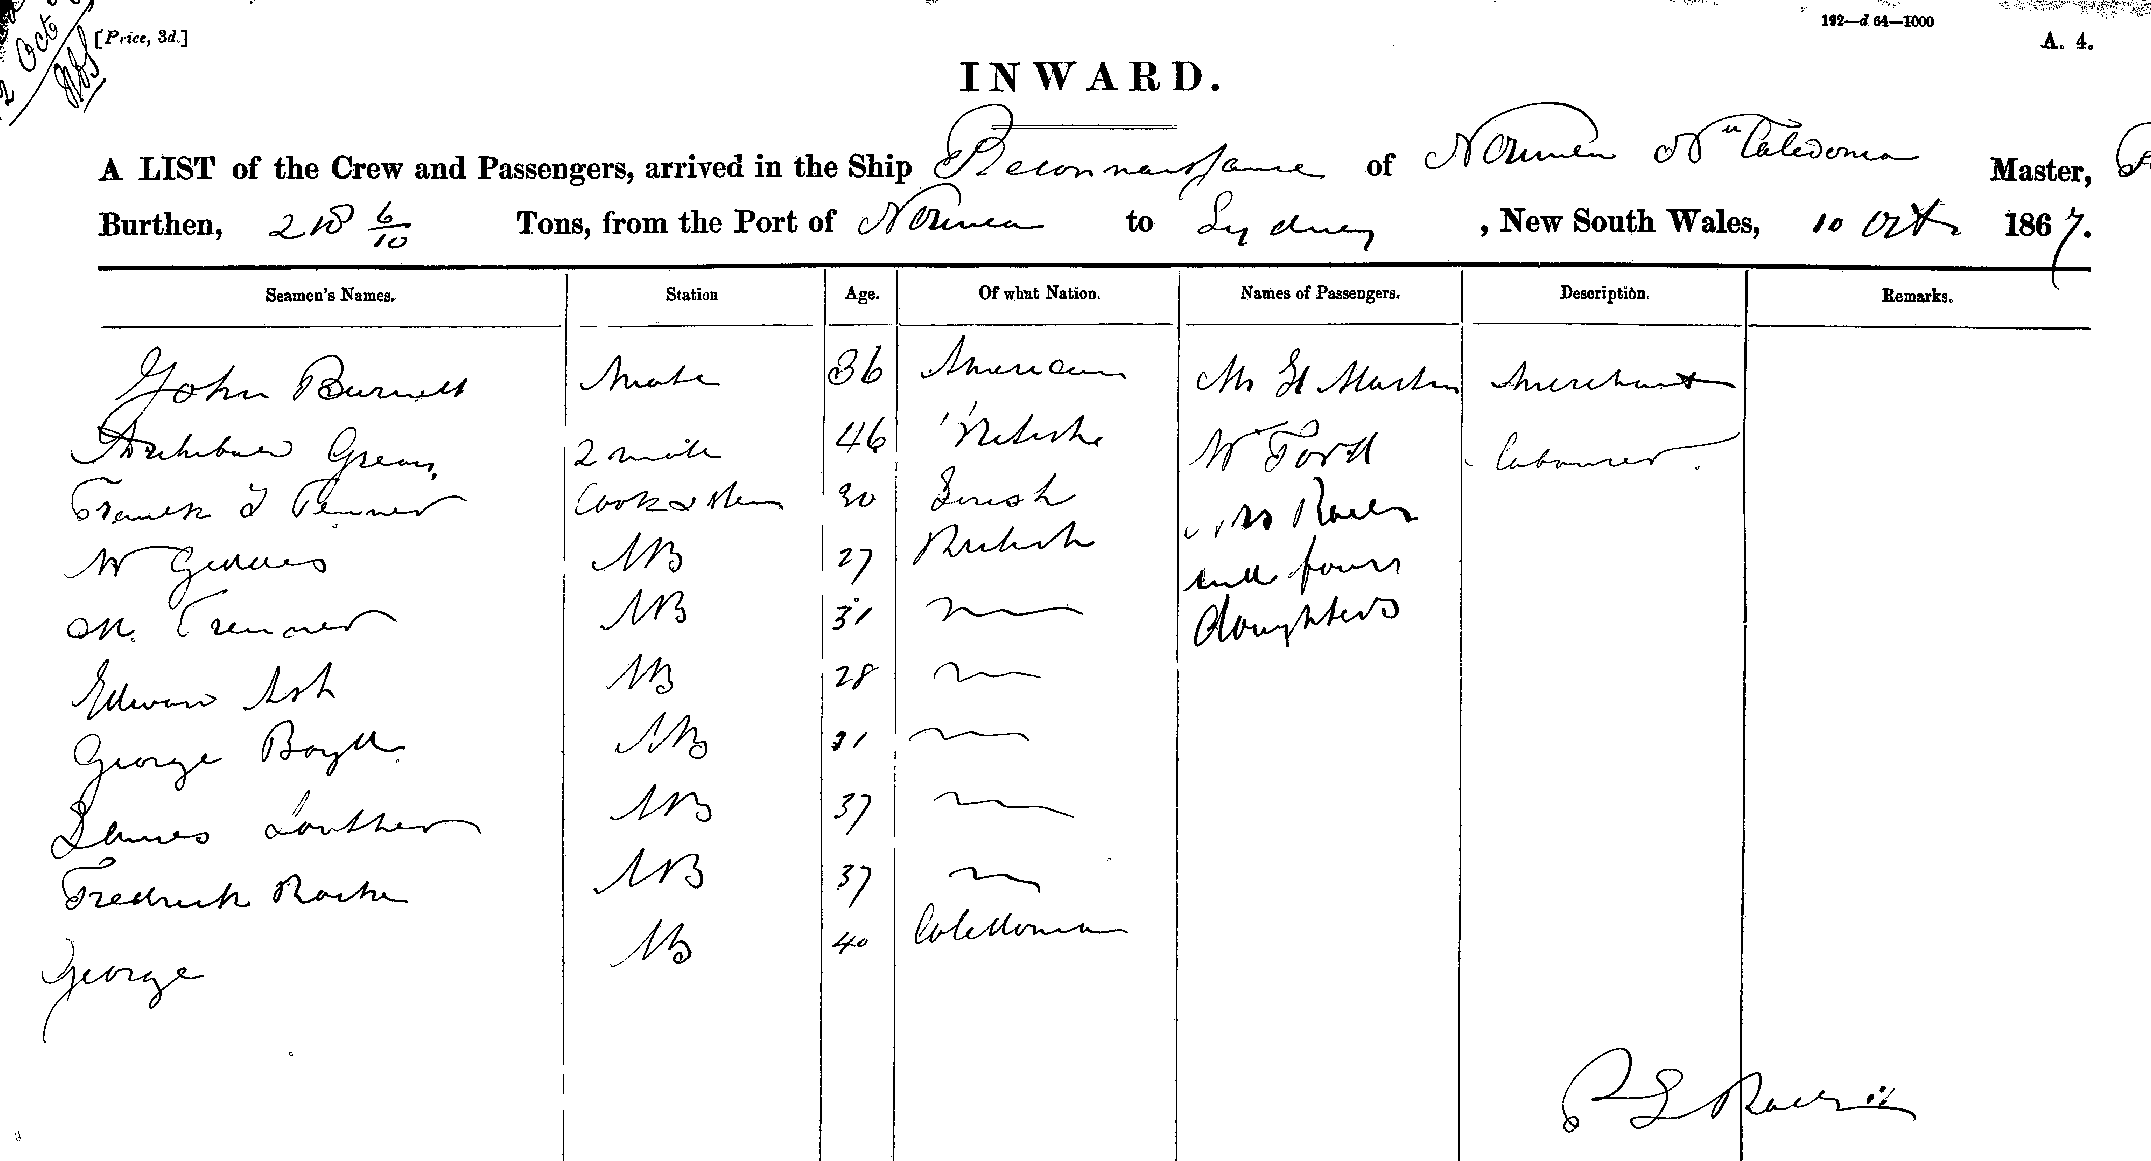 Oct
[Price, 3d.]
192—d 64—1000
A. 4.
INWARD.
A LIST of the Crew and Passengers, arrived in the Ship Reconnaissance of Noumea Nw Caledonia Master,
Burthen, 218 6/10 Tons, from the Port of Noumea to Sydney, New South Wales, 10 Oct 1867.
Seamen's Names. Station Age. Of what Nation. Names of Passengers. Description. Remarks.
John Burnett Mate 36 American Mr St Martin Merchant
Archibald 2 mate 46 British W Ford labourer.
Cook & Stew 30 Irish Mrs
W AB 27 British and four
M. AB 31 daughters
Edward Ash AB 28
George AB 21
James AB 37
Fredrick AB 37
George AB 40 Caledonian